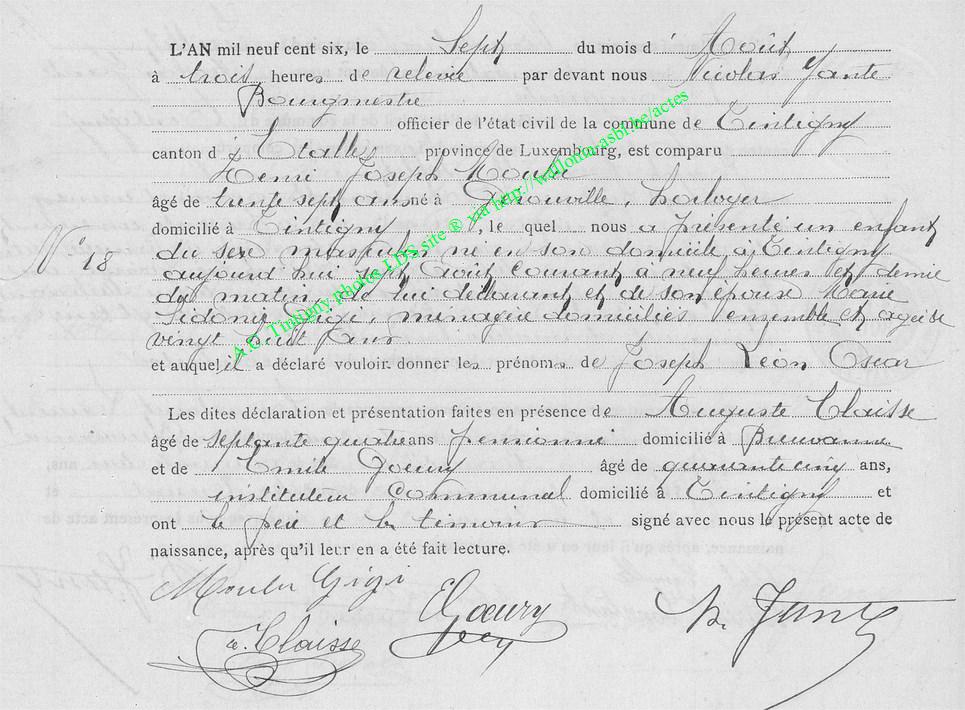 L'AN mil neuf cent six, le Sept du mois d' Août
à trois heures de relevée par devant nous Nicolas Jante
Bourgmestre
officier de l'état civil de la commune de Tintigny
canton d' Etalle, province de Luxembourg, est comparu
Henri Joseph
âgé de trente sept ans né à Gérouville, horloger
domicilié à Tintigny, le quel nous a présenté un enfant
N° 18
du sexe masculin né en son domicile à Tintigny
aujourd'hui sept Août courant à neuf heures et demie
du matin, de lui déclarant et de son épouse Marie
Sidonie Gigi, ménagère domiciliés ensemble et agée de
vingt huit ans
et auquel il a déclaré vouloir donner les prénoms de Joseph Léon Oscar
Les dites déclaration et présentation faites en présence de Auguste Claisse
âgé de septante quatre ans pensionné domicilié à Breuvanne
et de Emile Goeury âgé de quarante cinq ans,
instituteur communal domicilié à Tintigny et
ont le père et les témoins signé avec nous le présent acte de
naissance, après qu'il leur en a été fait lecture.
Gigi
E Goeury
N. Jante
a. Claisse
A.C. Tintigny photos LDS site ® via http://wallonia-asbl.be/actes